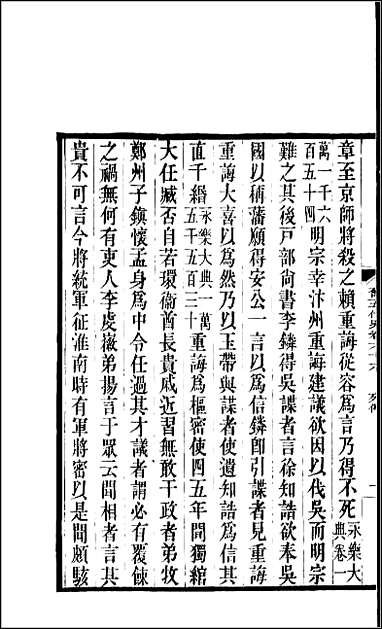 章至京師將殺之賴重誨從容爲言乃得不死永樂大典卷一
萬一千六百五十四明宗幸汴州重誨建議欲因以伐吳而明宗
難之其後戸部尚書李鏻得吳諜者言徐知誥欲奉吳
國以稱藩願得安公一言以爲信鏻卽引諜者見重誨
重誨大喜以爲然乃以玉帶與諜者使遺知誥爲信其
直千緡永樂大典一萬五千五百三十重誨爲樞密使四五年間獨綰
大任臧否自若環衞酋長貴戚近習無敢干政者弟牧
鄭州子鎮懷孟身爲中令任過其才議者謂必有覆餗
之禍無何有吏人李虔徽弟揚言于眾云聞相者言其
貴不可言今將統軍征淮南時有軍將密以是聞頗駭